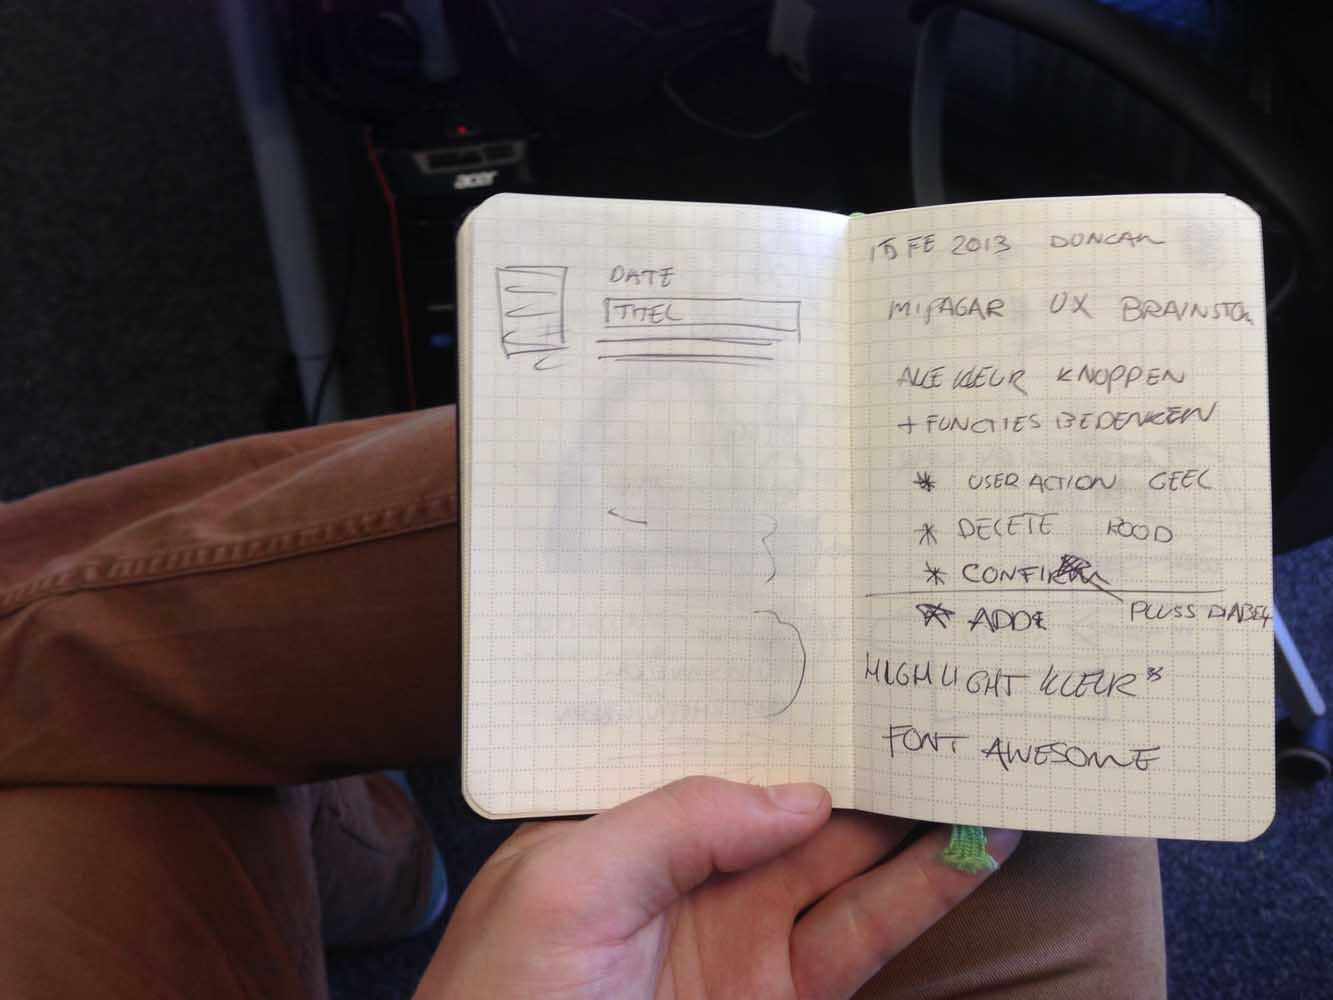 acer
DATE
TITEL
15 FE 2013 DUNCAN
MIPAGAR UX BRAINSTO
ALLE KLEUR KNOPPEN
+ FUNCTIES BEDENKEN
* USER ACTION GEEL
* DELETE ROOD
* CONFIRM
* ADDE PLUSS DIABEL
HIGHLIGHT KLEUR*
FONT AWESOME